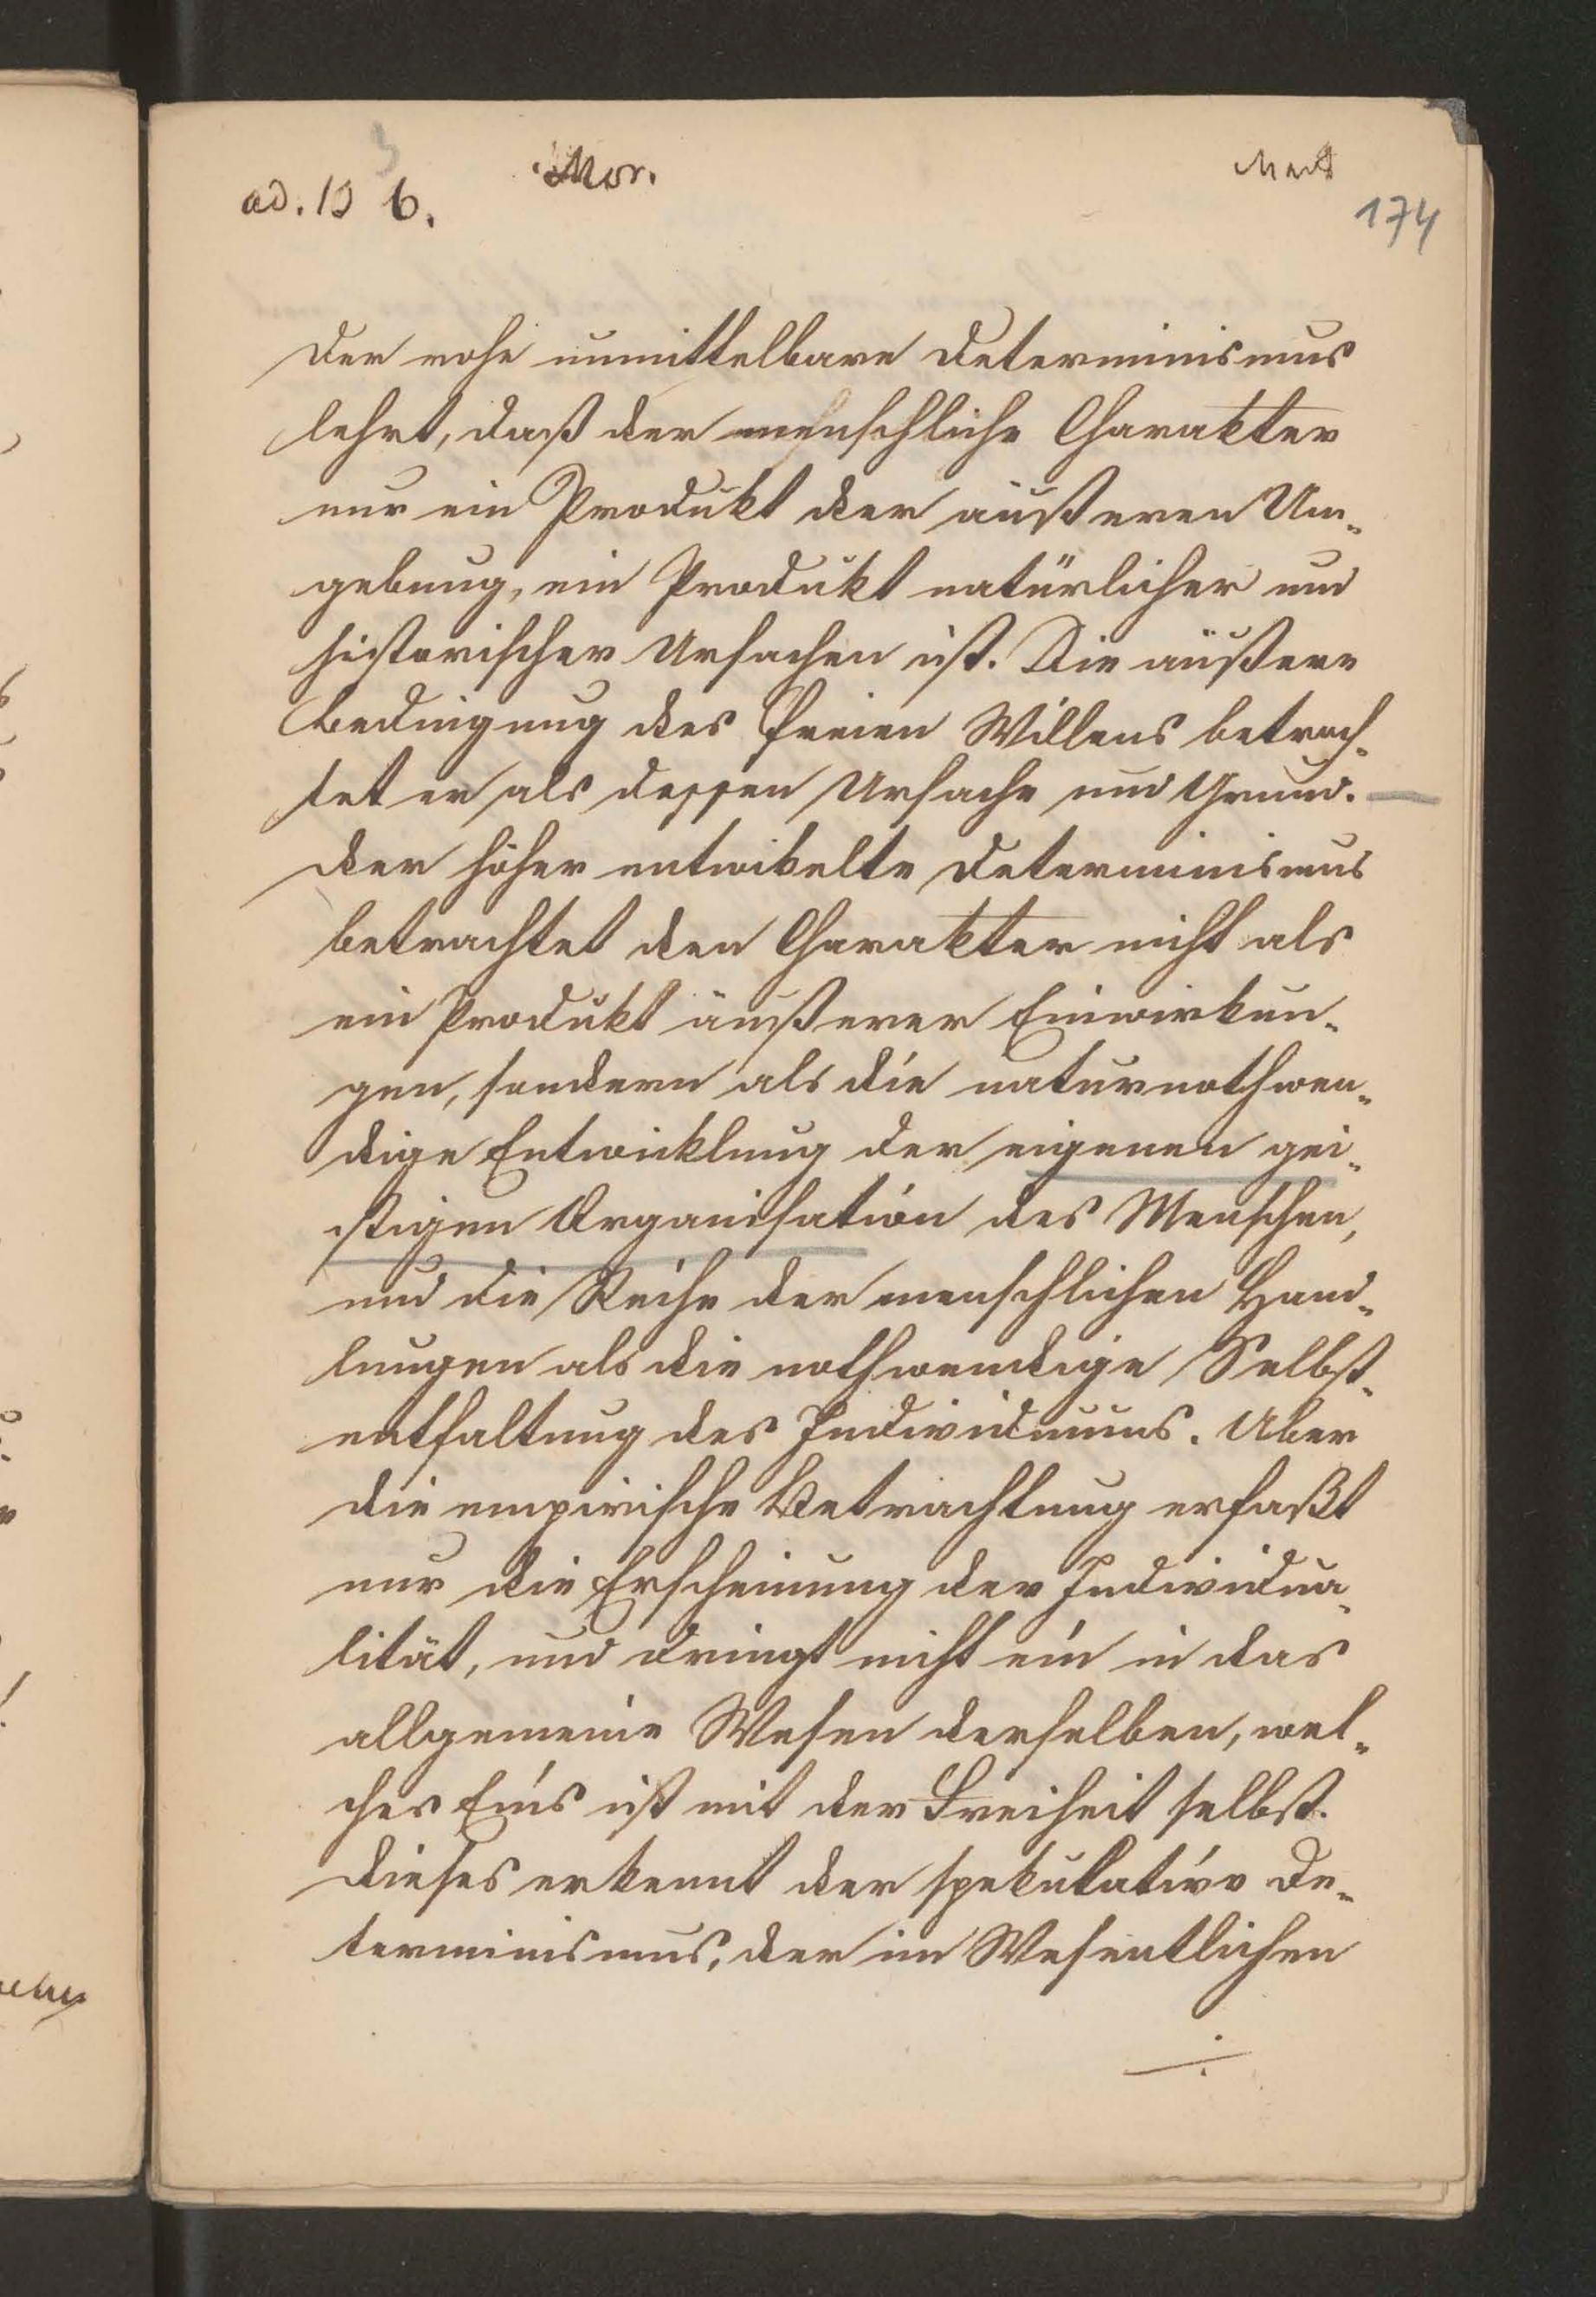 ad. 13 b.
Mor.
174
Der rohe unmittelbare Determinismus
lehrt, daß der menschliche Charakter
nur ein Produkt der äußeren Um-
gebung, ein Produkt natürlicher und
historischer Ursachen ist. Die äußere
Bedingung des freien Willens betrach-
tet er als dessen Ursache und Grund. —
Der höher entwikelte Determinismus
betrachtet den Charakter nicht als
ein Produkt äußerer Einwirkun-
gen, sondern als die naturnothwen-
dige Entwicklung der eigenen gei-
stigen Organisation des Menschen,
und die Reihe der menschlichen Hand-
lungen als die nothwendige Selbst-
entfaltung des Individuums. Aber
die empirische Betrachtung erfaßt
nur die Erscheinung der Individua-
lität, und dringt nicht ein in das
allgemeine Wesen derselben, wel-
ches Eins ist mit der Freiheit selbst.
Dieses erkennt der spekulative De-
terminismus, der im Wesentlichen